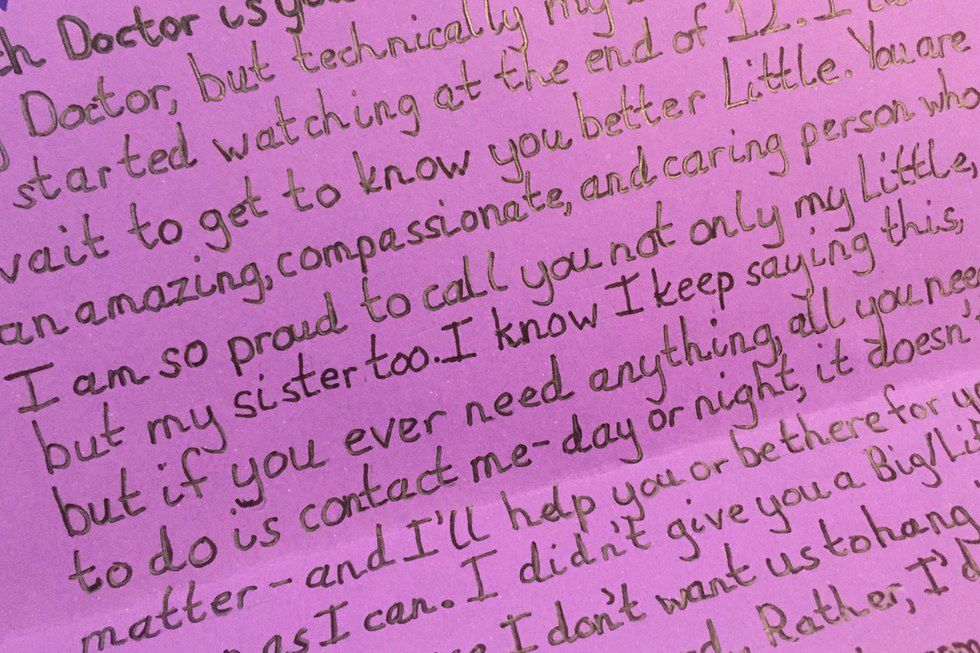 Doctor is
Doctor, but technically my
started watching at the end of 12. I
wait to get to know you better Little. You are
an amazing, compassionate, and caring person who
I am so proud to call you not only my Little,
but my sister too. I know I keep saying this,
but if you ever need anything, all you
to do is contact me-day or night, it doesn't
matter - and I'll help you or be there for
as I can. I didn't give you a Big/
I don't want us to hang
Rather, I'd